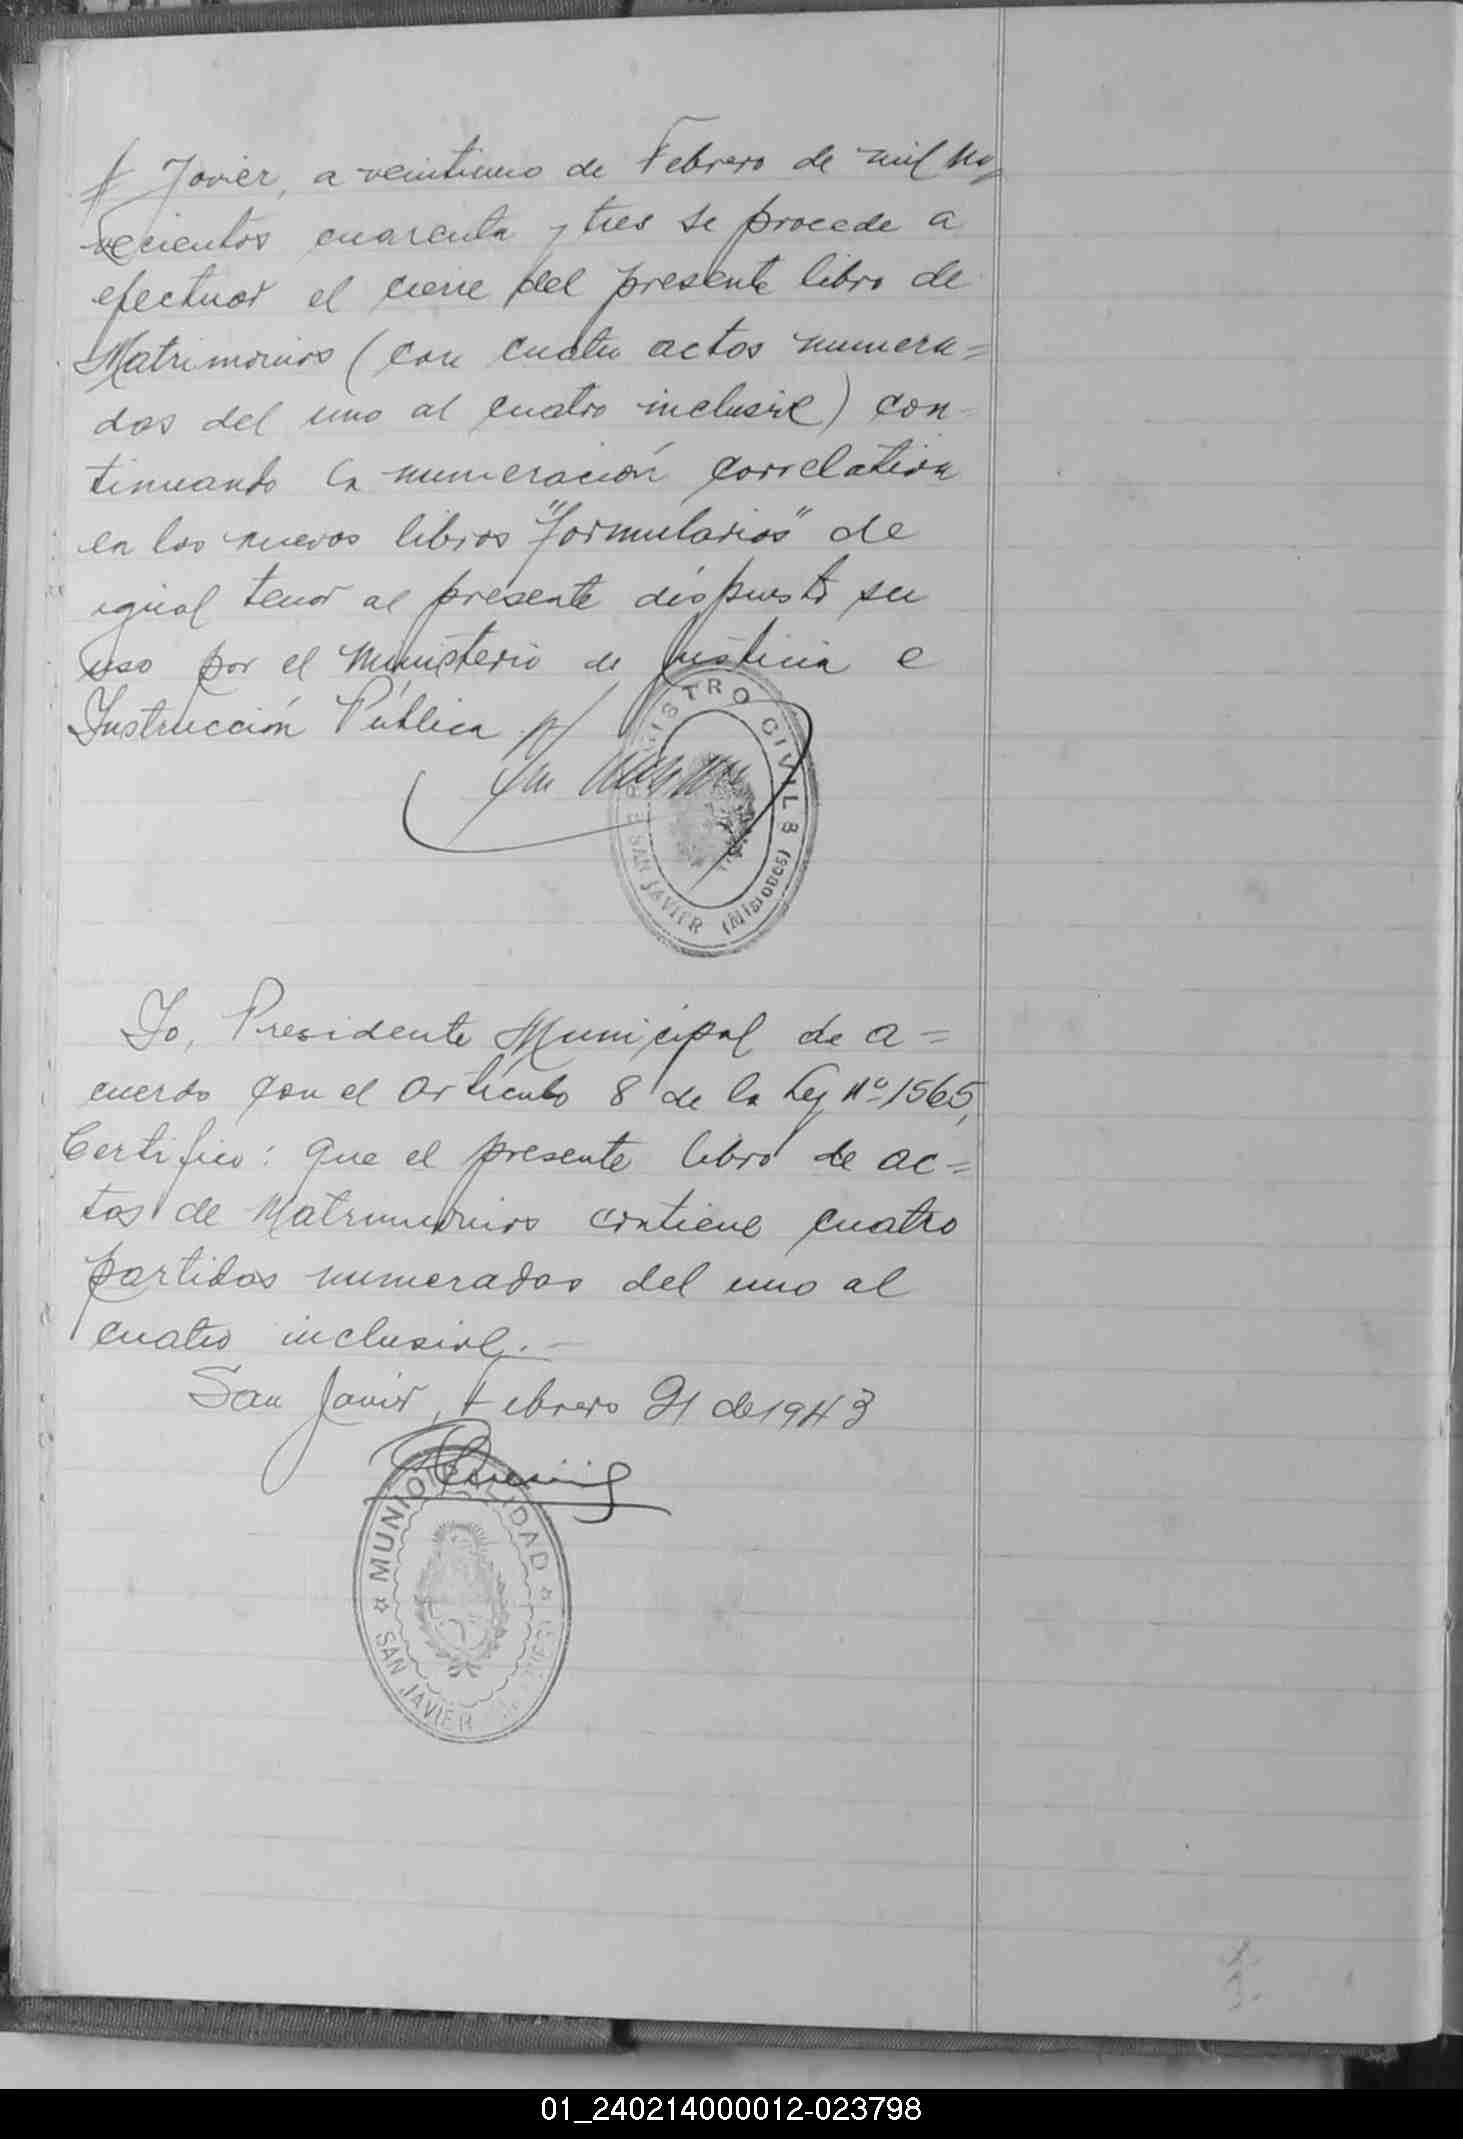 # Javier, a veintiuno de Febrero de mil no=
vecientos cuarenta y tres se procede a
efectuar el cierre del presente libro de
Matrimonios (con cuatro actos numera=
das del uno al cuatro inclusive) con-
tinuando la numeración correlativa
en los nuevos libros "formularios" de
igual tenor al presente dispuesto su
uso por el Ministerio de Justicia e
Instrucción Pública.
REGISTRO CIVIL
DE SAN JAVIER (Misiones)
Yo, Presidente Municipal de a=
cuerdo con el Artículo 8 de la Ley Nº 1565,
Certifico: Que el presente libro de ac=
tas de Matrimonios contiene cuatro
partidas numeradas del uno al
cuatro inclusive.-
San Javier, Febrero 21 de 1943
MUNICIPALIDAD
SAN JAVIER
01_240214000012-023798